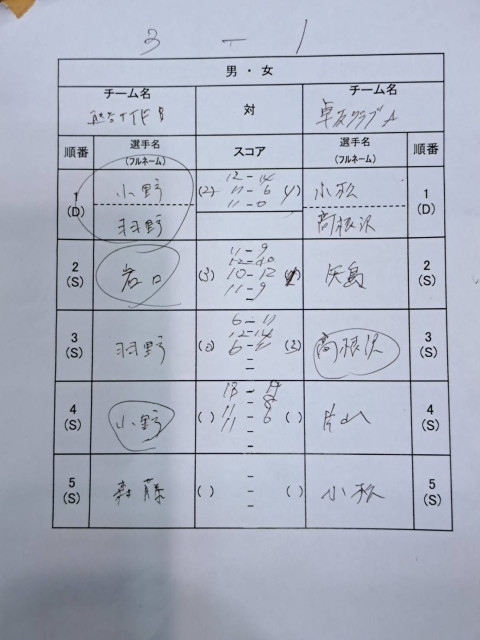 3 - 1
男・女
チーム名 対 チーム名
卓友クラブA
順番 選手名 (フルネーム) スコア 選手名 (フルネーム) 順番
1 (D) 小野 (2) 12 - 14 (1) 小松 1 (D)
11 - 6
羽野 11 - 0 高根沢
2 (S) 岩口 (3) 11 - 9 矢島 2 (S)
12 - 10
10 - 12
11 - 9
-
3 (S) 羽野 (0) 6 - 11 高根沢 3 (S)
12 - 14
6 - 11
-
-
4 (S) 小野 ( ) ( ) 片山 4 (S)
11 - 8
11 - 6
-
-
5 (S) 森藤 ( ) - ( ) 小松 5 (S)
-
-